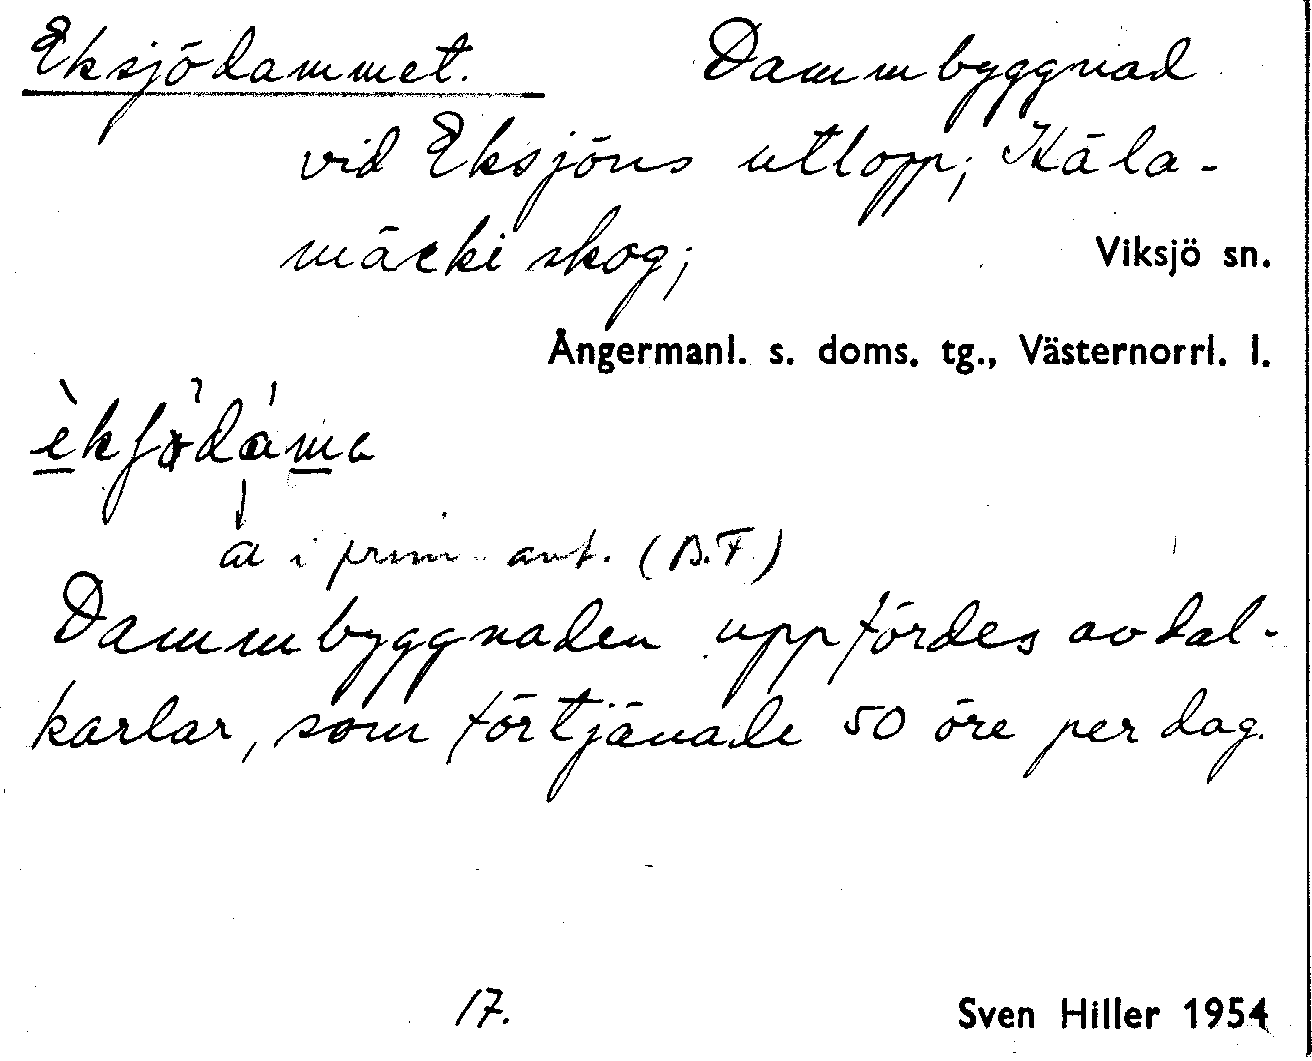 Eksjödammet. Dammbyggnad
vid Eksjöns utlopp; Käla-
märki skog; Viksjö sn.
Ångermanl. s. doms. tg., Västernorrl. l.
a i prim. ant. (B.F.)
Dammbyggnaden uppfördes av dal-
karlar, som förtjänade 50 öre per dag.
17. Sven Hiller 1954